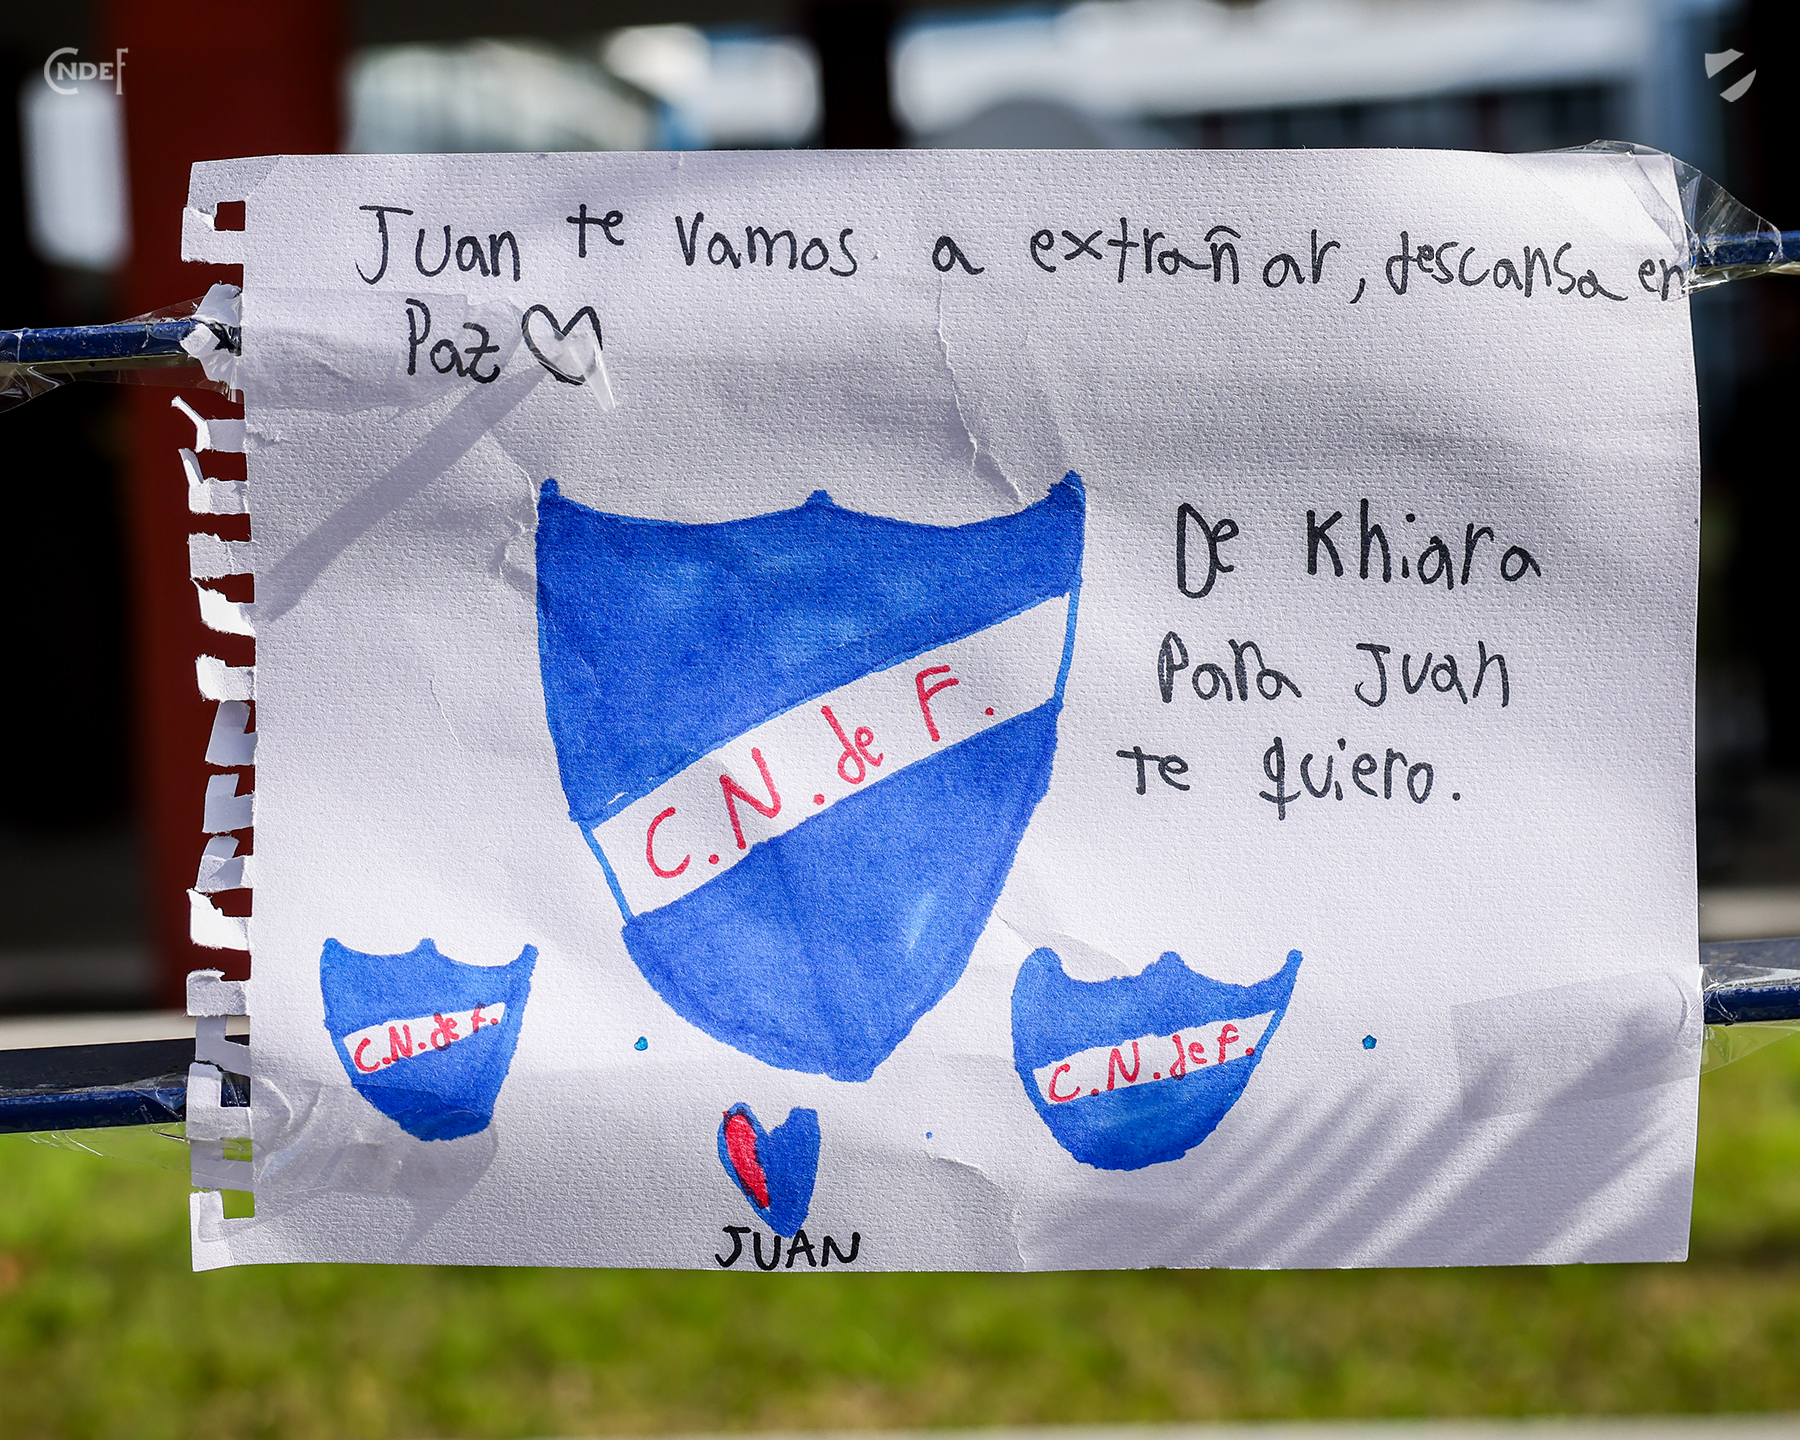 CNDEF
Juan te vamos a extrañar, descansa en
Paz
De Khiara
Para Juan
te quiero.
C.N.de F.
C.N.de F.
C.N.de F.
JUAN